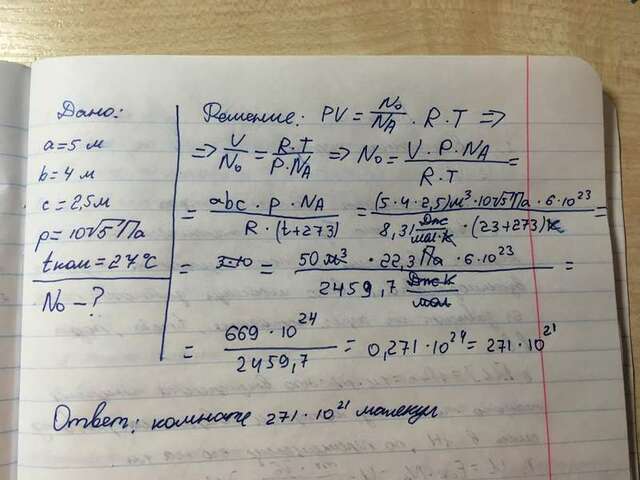 Дано:
a = 5 м
b = 4 м
c = 2,5 м
p = 10^5 Па
tком = 27 °C
N₀ - ?
Решение: PV = N₀/NA · R·T =>
=> V/N₀ = R·T/P·NA => N₀ = V·P·NA/R·T =
= abc·p·NA/R·(t+273) = (5·4·2,5)м³ · Па·6·10^23/8,31 Дж/моль·К · (23+273)К =
= = 50 м³ · 22,3 Па · 6·10^23/2459,7 Дж·К/моль =
= 669·10^24/2459,7 = 0,271·10^24 = 271·10^21
Ответ: 271·10^21 молекул